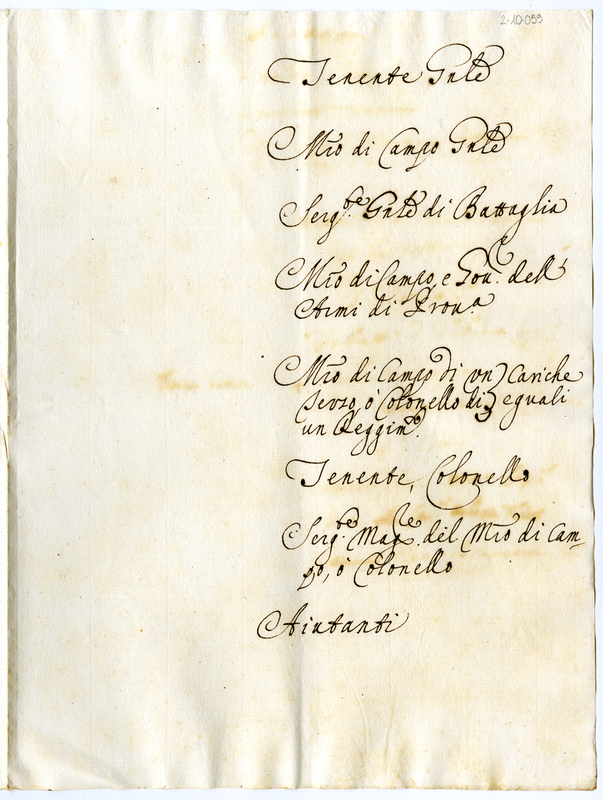 2-10-059
Tenente Gnle
Mro di Campo Gnle
Sergte. Gnle di Battaglia
Mro di Campo, e Gou.re dell'
Armi di Prou.a
Mro di Campo di vn) Cariche
Terzo, ò Colonello di} eguali
un Reggimto.
Tenente, Colonello
Sergte. Mage. del Mro di Cam-
po, ò Colonello
Aiutanti